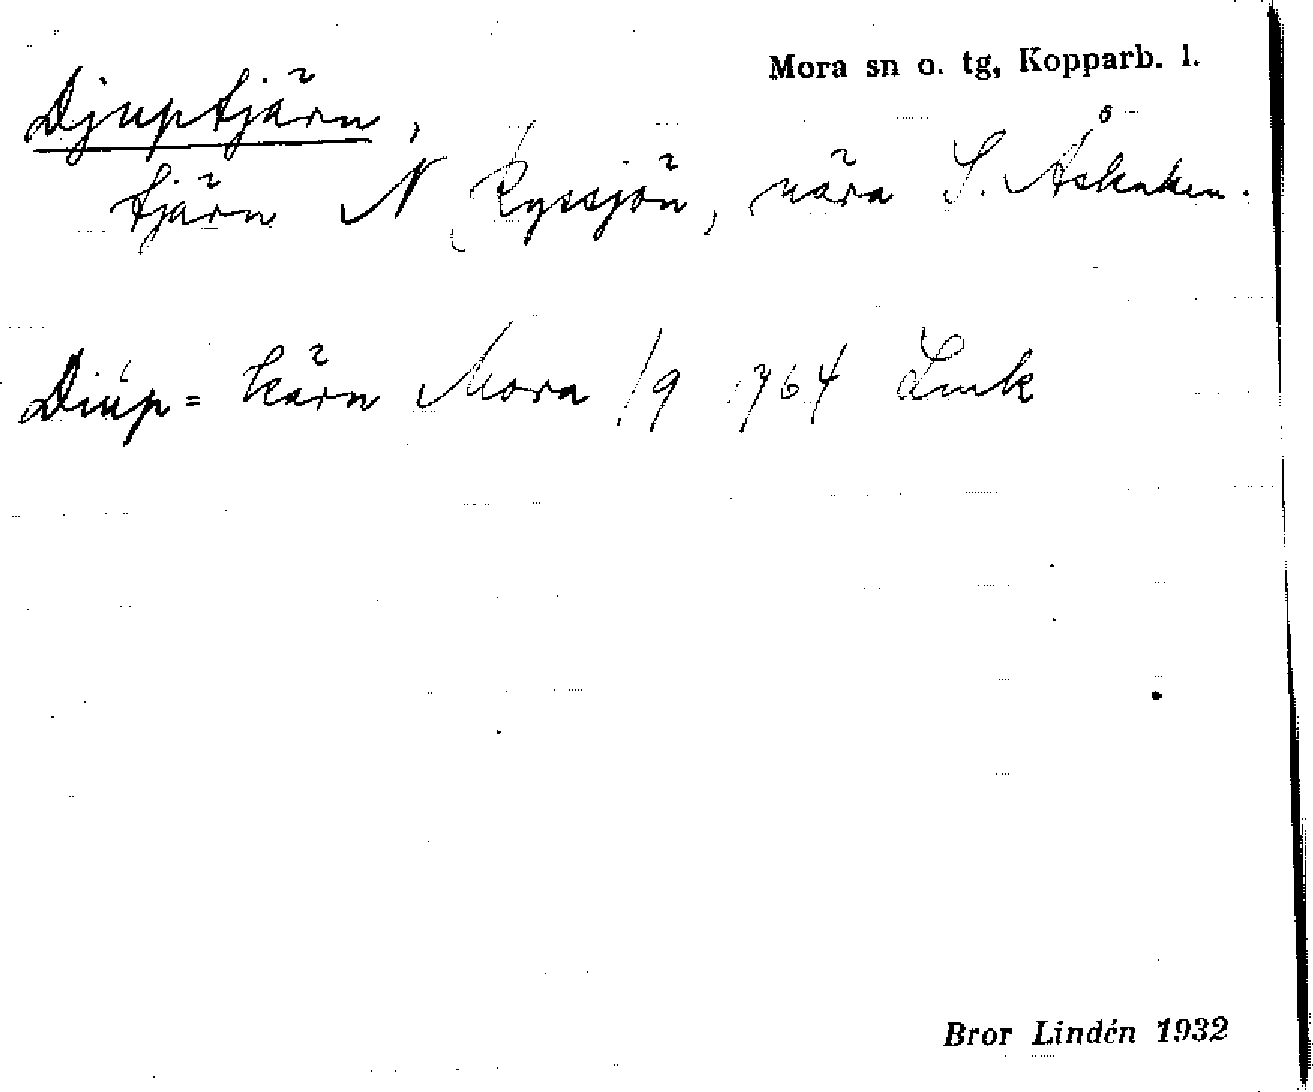 Mora sn o. tg, Kopparb. l.
Djuptjärn,
tjärn N Ryssjön, nära S. Åskaken.
Diup= kärn Mora /9 1764 Lmk
Bror Lindén 1932